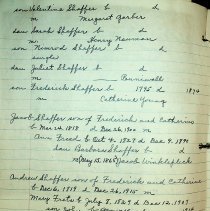 son Valentine Shaffer b d
m Margaret Garber
dau Sarah Shaffer b d
m Henry Neuman
son Nimrod Shaffer b d
single
dau Juliet Shaffer b d
m Penniwell
son Frederick Shaffer b 1795 d 1874
m Catherine Young
Jacob Shaffer son of Frederick and Catherine
b Mar 14, 1818 d Dec 26, 1900 m
Ann Treed b Oct 4, 1829 d Dec 9, 1894
dau Barbara Shaffer b d
m (May 15, 1865) Jacob Winklepleck
Andrew Shaffer son of Frederick and Catherine
b Dec 6, 1819 d Dec 26, 1905 m
Mary b July 8, 1829 d Dec 12, 1907